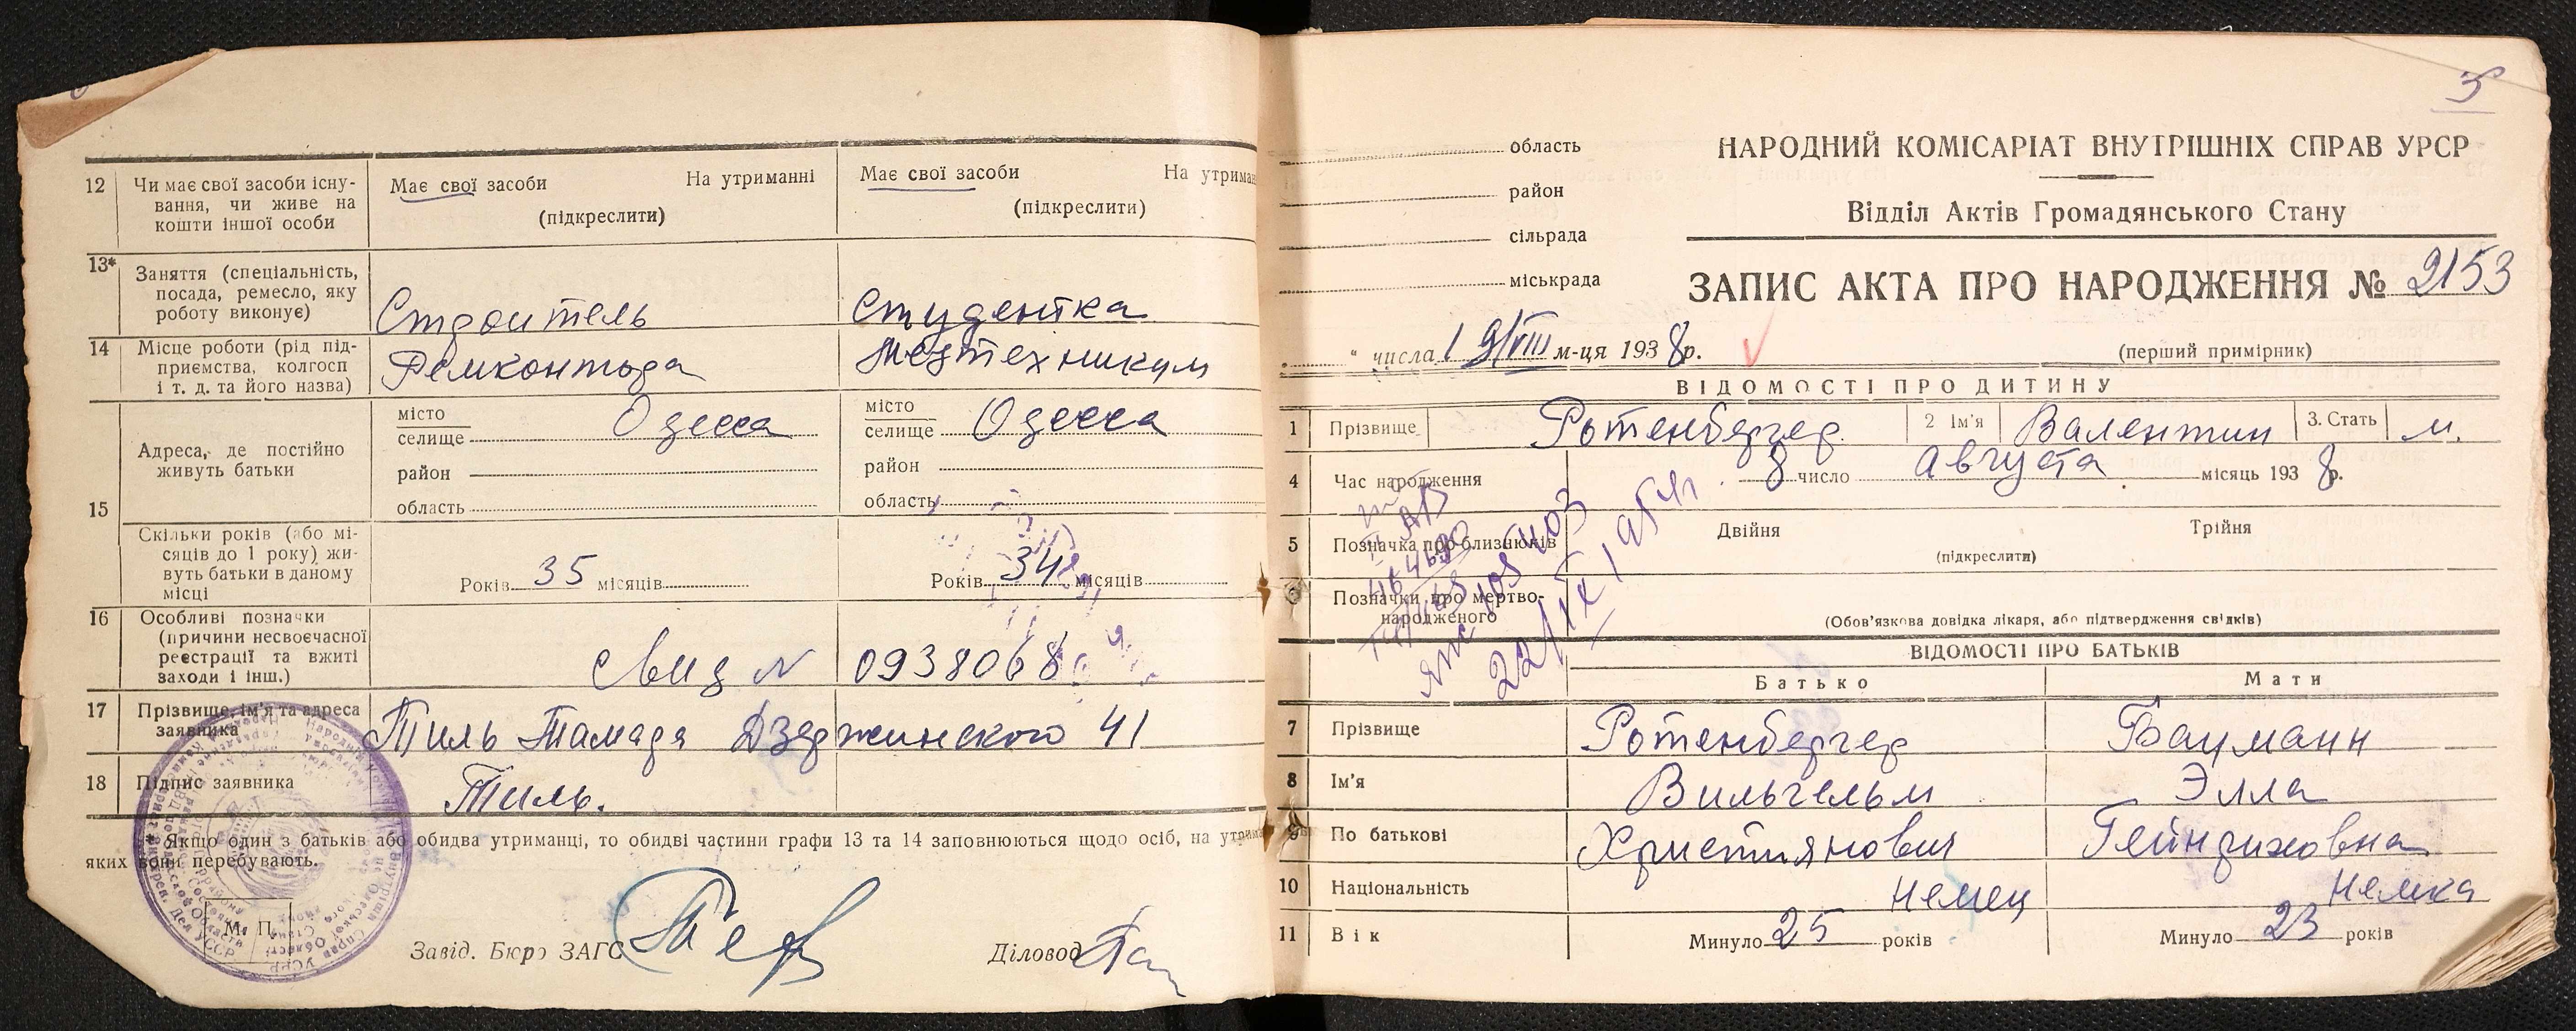 12 Чи має свої засоби існу-
вання, чи живе на
кошти іншої особи
Має свої засоби На утриманні
(підкреслити)
Має свої засоби На утриман
(підкреслити)
13* Заняття (спеціальність,
посада, ремесло, яку
роботу виконує)
Строитель
Студентка
14 Місце роботи (рід під-
приємства, колгосп
і т. д. та його назва)
Ремконтора
Медтехникум
15 Адреса, де постійно
живуть батьки
місто
селище Одесса
район
область
місто
селище Одесса
район
область
Скільки років (або мі-
сяців до 1 року) жи-
вуть батьки в даному
місці
Років 35 місяців
Років 34 місяців
16 Особливі позначки
(причини несвоєчасної
реєстрації та вжиті
заходи і інш.)
Свид N 0938068
17 Прізвище, ім'я та адреса
заявника
Тиль Тамара Дзержинского 41
18 Підпис заявника
Тиль.
* Якщо один з батьків або обидва утриманці, то обидві частини графи 13 та 14 заповнюються щодо осіб, на утрима
яких вони перебувають.
М. П.
Завід. Бюро ЗАГС
Діловод
3
область
район
сільрада
міськрада
НАРОДНИЙ КОМІСАРІАТ ВНУТРІШНІХ СПРАВ УРСР
Відділ Актів Громадянського Стану
ЗАПИС АКТА ПРО НАРОДЖЕННЯ № 2153
" числа 19/VIII м-ця 1938 р.
(перший примірник)
ВІДОМОСТІ ПРО ДИТИНУ
1 Прізвище Ротенбергер 2 Ім'я Валентин 3. Стать м.
4 Час народження 8 число Августа місяць 1938 р.
5 Позначка про близнюків
Двійня Трійня
(підкреслити)
6 Позначки про мертво-
народженого
(Обов'язкова довідка лікаря, або підтвердження свідків)
22/IX 1954 г
ВІДОМОСТІ ПРО БАТЬКІВ
Батько Мати
7 Прізвище Ротенбергер Бауманн
8 Ім'я Вильгельм Элла
9 По батькові Христianович Гейнриховна
10 Національність Немец Немка
11 Вік Минуло 25 років Минуло 23 років